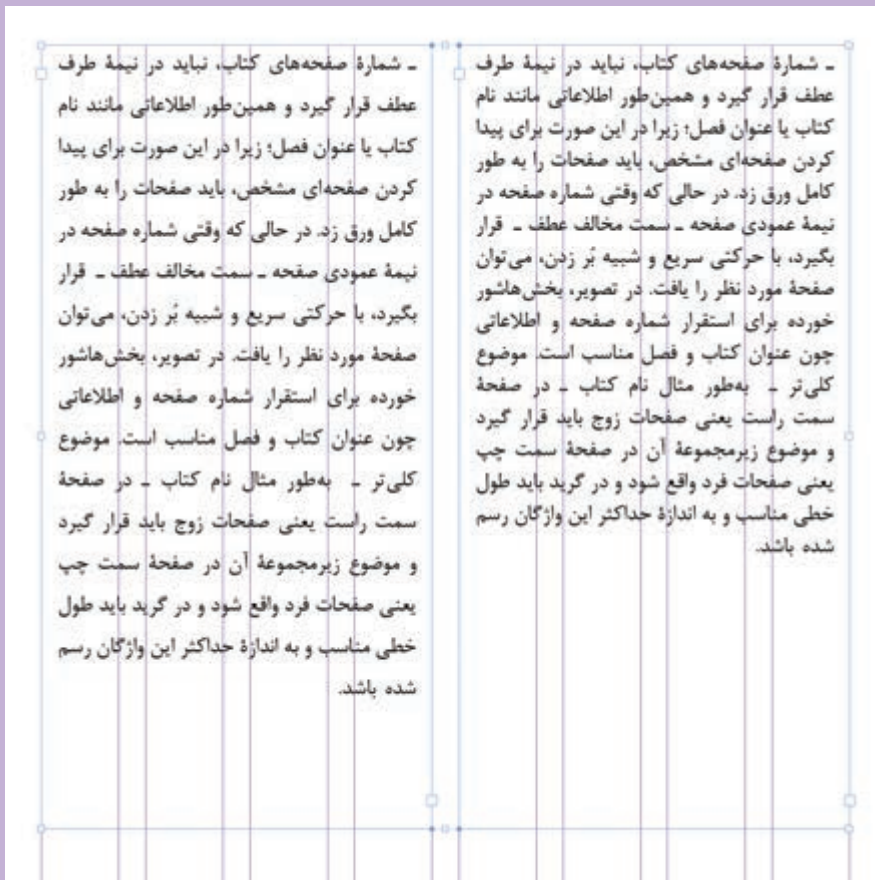 ـ شمارۀ صفحه‌های کتاب، نباید در نیمۀ طرف
عطف قرار گیرد و همین‌طور اطلاعاتی مانند نام
کتاب یا عنوان فصل؛ زیرا در این صورت برای پیدا
کردن صفحه‌ای مشخص، باید صفحات را به طور
کامل ورق زد. در حالی که وقتی شماره صفحه در
نیمۀ عمودی صفحه ـ سمت مخالف عطف ـ قرار
بگیرد، با حرکتی سریع و شبیه بُر زدن، می‌توان
صفحۀ مورد نظر را یافت. در تصویر، بخش‌هاشور
خورده برای استقرار شماره صفحه و اطلاعاتی
چون عنوان کتاب و فصل مناسب است. موضوع
کلی‌تر ـ به‌طور مثال نام کتاب ـ در صفحۀ
سمت راست یعنی صفحات زوج باید قرار گیرد
و موضوع زیرمجموعۀ آن در صفحۀ سمت چپ
یعنی صفحات فرد واقع شود و در گرید باید طول
خطی مناسب و به اندازۀ حداکثر این واژگان رسم
شده باشد.
ـ شمارۀ صفحه‌های کتاب، نباید در نیمۀ طرف
عطف قرار گیرد و همین‌طور اطلاعاتی مانند نام
کتاب یا عنوان فصل؛ زیرا در این صورت برای پیدا
کردن صفحه‌ای مشخص، باید صفحات را به طور
کامل ورق زد. در حالی که وقتی شماره صفحه در
نیمۀ عمودی صفحه ـ سمت مخالف عطف ـ قرار
بگیرد، با حرکتی سریع و شبیه بُر زدن، می‌توان
صفحۀ مورد نظر را یافت. در تصویر، بخش‌هاشور
خورده برای استقرار شماره صفحه و اطلاعاتی
چون عنوان کتاب و فصل مناسب است. موضوع
کلی‌تر ـ به‌طور مثال نام کتاب ـ در صفحۀ
سمت راست یعنی صفحات زوج باید قرار گیرد
و موضوع زیرمجموعۀ آن در صفحۀ سمت چپ
یعنی صفحات فرد واقع شود و در گرید باید طول
خطی مناسب و به اندازۀ حداکثر این واژگان رسم
شده باشد.